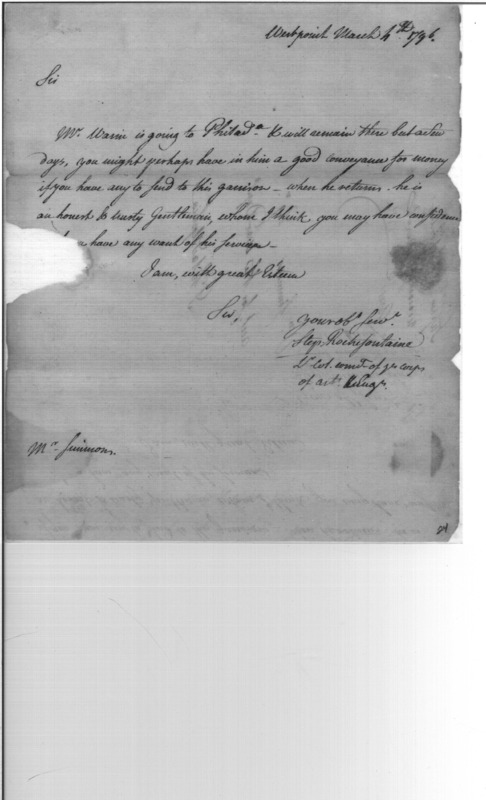 Westpoint March 4th 1796.
Sir
Mr. Warin is going to Philada. & will remain there but a few
days, you might perhaps have in him a good conveyance for money
if you have any to send to this garrison - when he returns. he is
an honest & trusty Gentleman, whom I think you may have confidence
have any want of his services -
I am, with great Esteem
Sir,
your obt. Servt.
Steps. Rochefontaine
Lt. Col. comdt. of ye corps
of arts. & Engs.
Mr. Simmons.